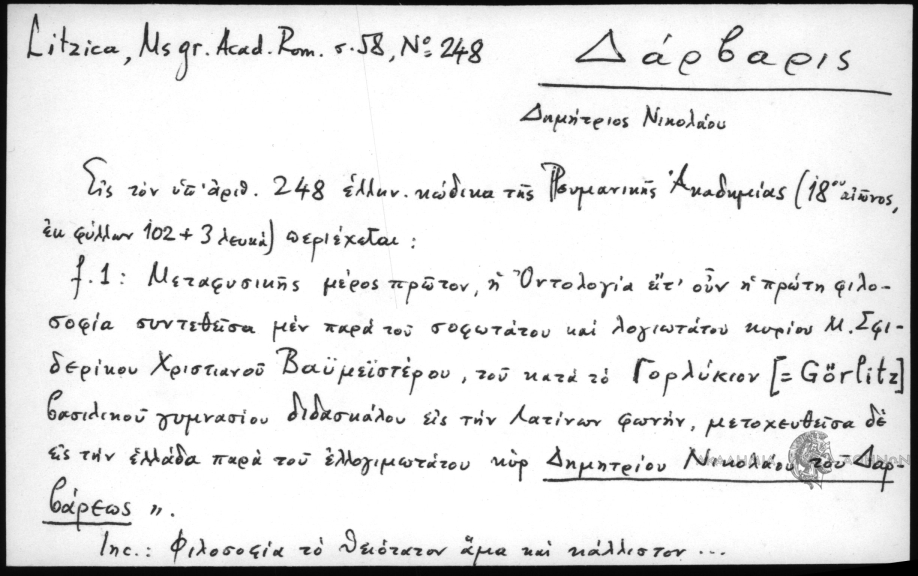 Litzica, Ms gr. Acad. Rom. σ. 58, Nο 248
Δάρβαρις
Δημήτριος Νικολάου
Εἰς τὸν ὑπ' ἀριθ. 248 ἑλλην. κώδικα τῆς Ῥουμανικῆς Ἀκαδημίας (18ου αἰῶνος,
ἐκ φύλλων 102 + 3 λευκά) περιέχεται :
f. 1 : Μεταφυσικῆς μέρος πρῶτον, ἡ Ὀντολογία εἴτ' οὖν ἡ πρώτη φιλο-
σοφία συντεθεῖσα μὲν παρὰ τοῦ σοφωτάτου καὶ λογιωτάτου κυρίου Μ. Σφι-
δερίκου Χριστιανοῦ Βαϋμεϊστέρου, τοῦ κατὰ τὸ Γορλύκιον [= Görlitz]
βασιλικοῦ γυμνασίου διδασκάλου εἰς τὴν Λατίνων φωνήν, μετοχευθεῖσα δὲ
εἰς τὴν ἑλλάδα παρὰ τοῦ ἐλλογιμωτάτου κὺρ Δημητρίου Νικολάου τοῦ Δαρ-
βάρεως ".
Inc. : Φιλοσοφία τὸ θειότατον ἅμα καὶ κάλλιστον ...
ΑΚΑΔΗΜΙΑ ΑΘΗΝΩΝ